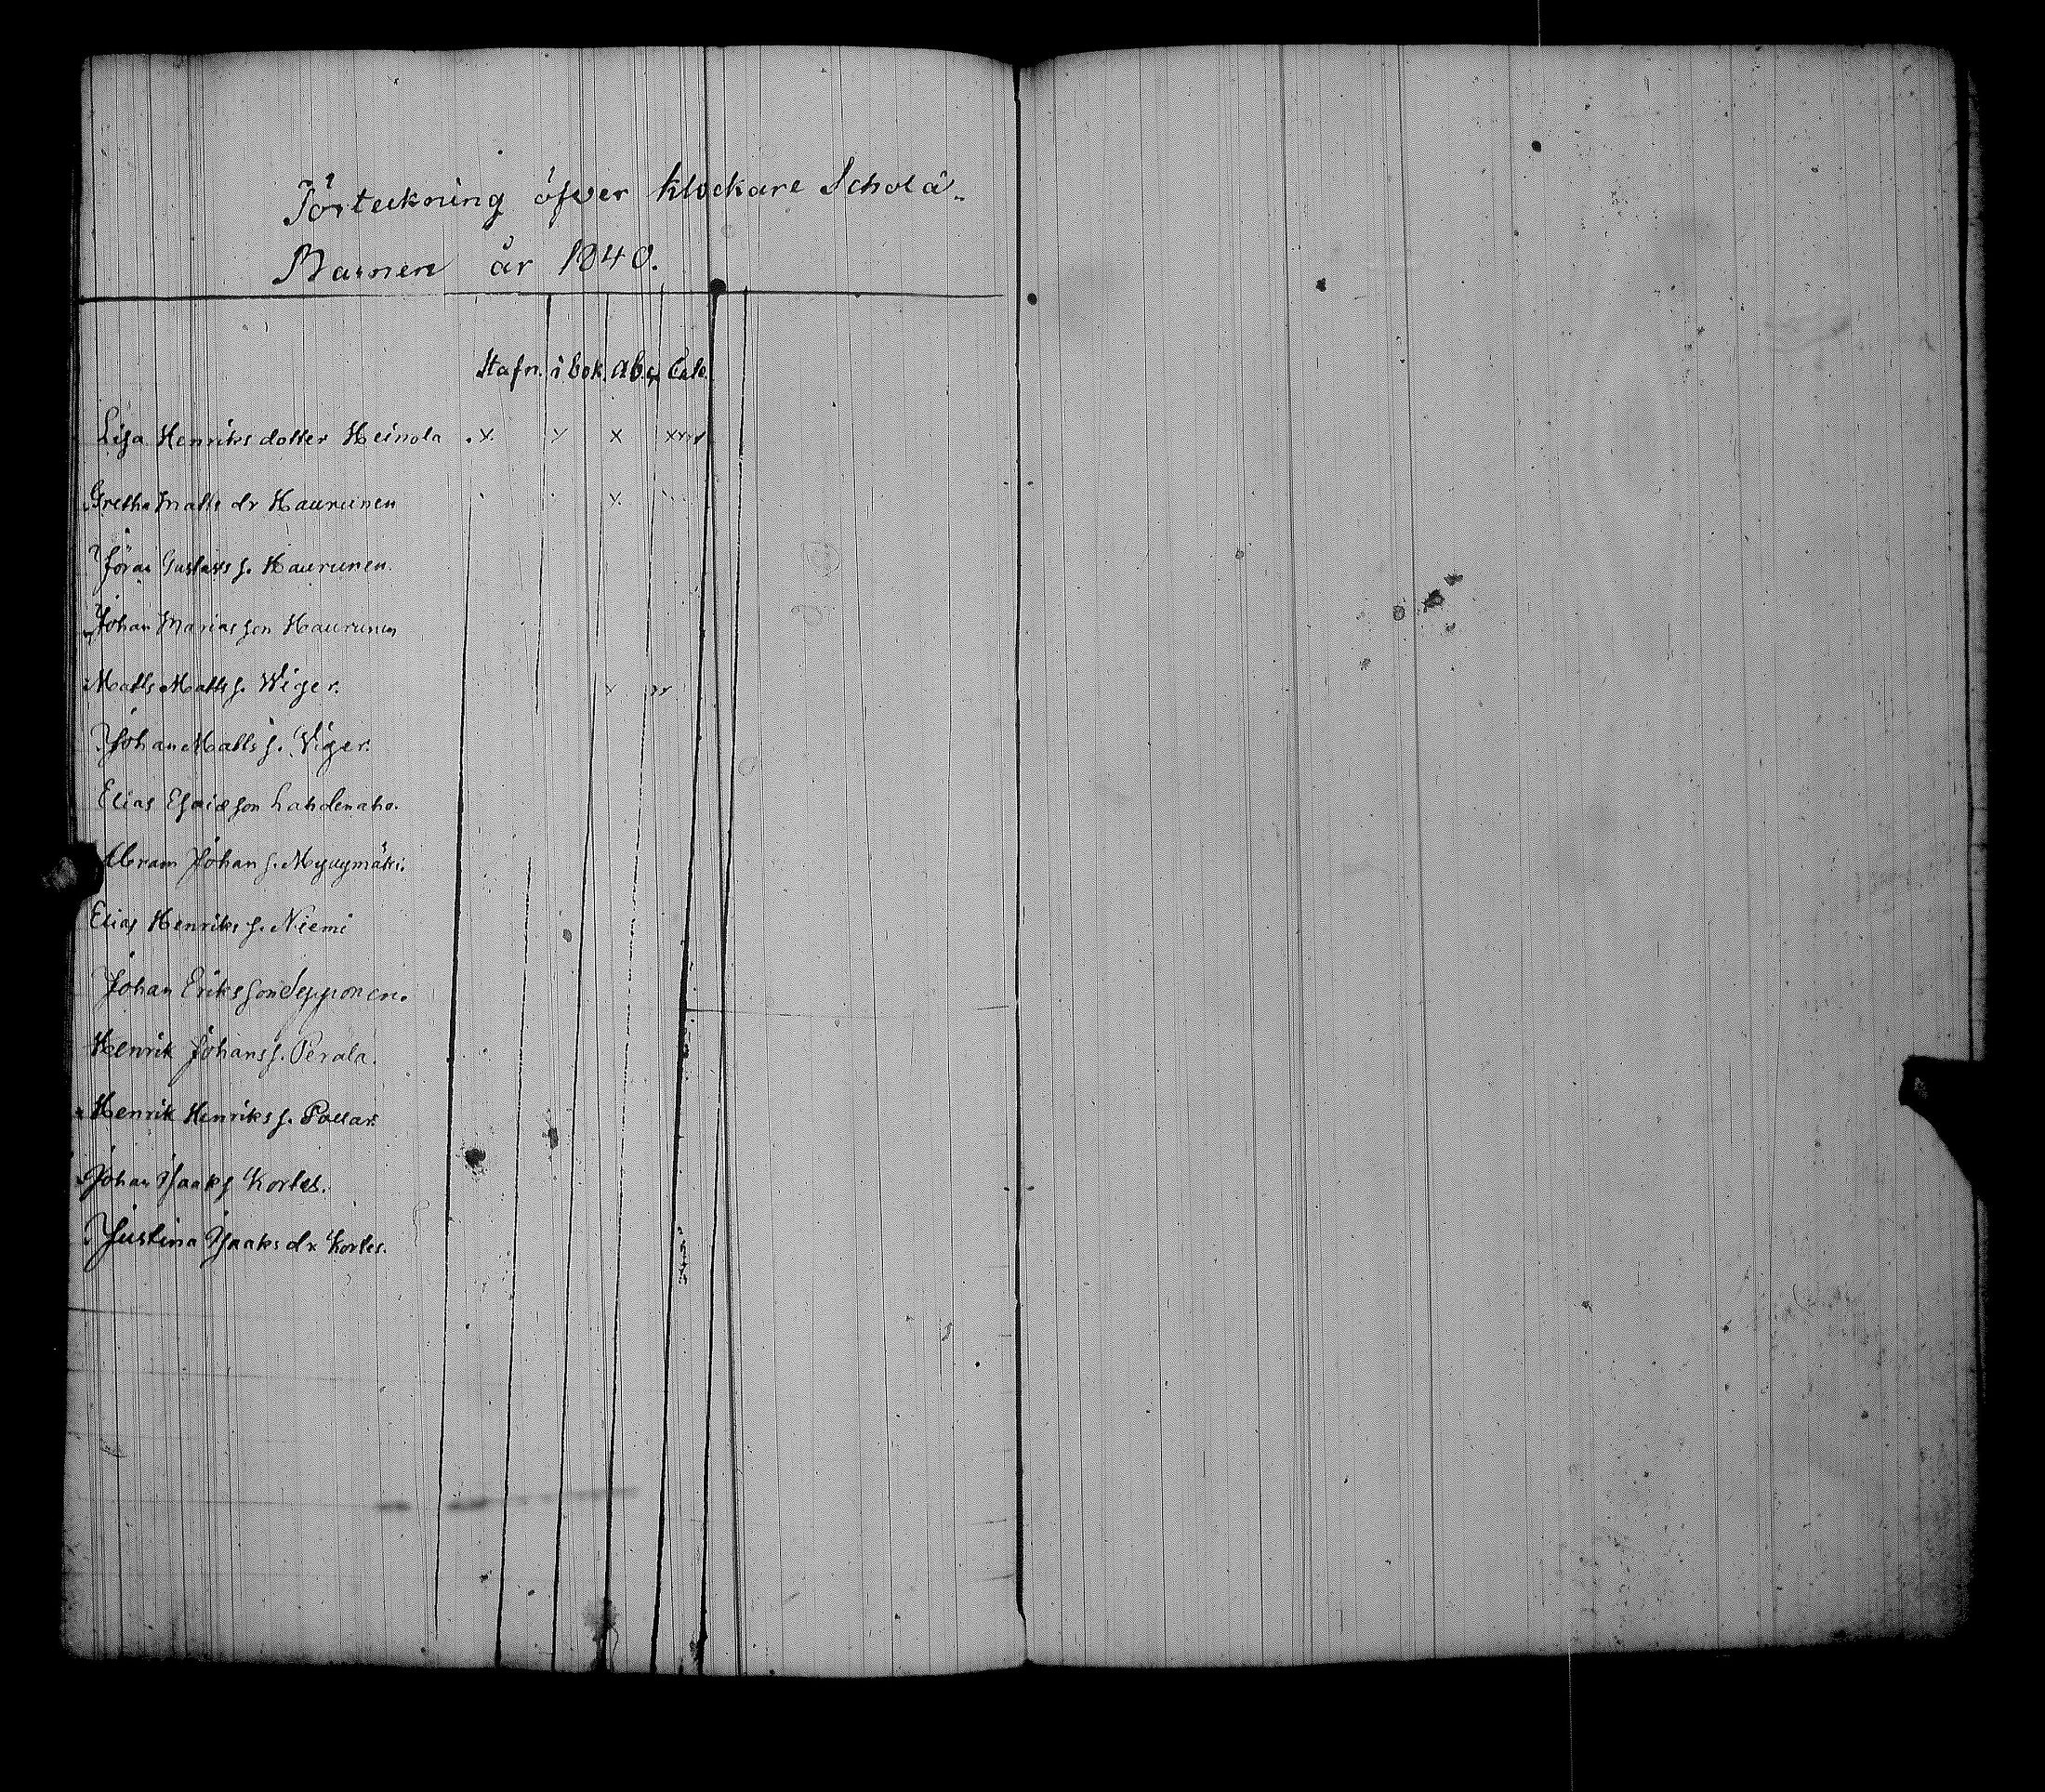 Förteckning öfver klockare Schola-
Barnen år 1840.
Stafn. i bok. Abc Cate.
Lisa Henriks dotter Heinola x x x xxxx
Gretha Matts dr Haurunen x
Jöran Gustafs s. Haurunen.
Johan Marias son Haurunen
Matts Matts s. Wiger. x
Johan Matts s. Wiger.
Elias Esaiæ son Lahdenaho.
Abram Johan s. Myllymäki.
Elias Henriks s. Niemi
Johan Eriks son Sepponen.
Henrik Johans s. Perala.
Henrik Henriks s. Pollar.
Johan Isaaks Kortes.
Justina Isaaks dr Kortes.